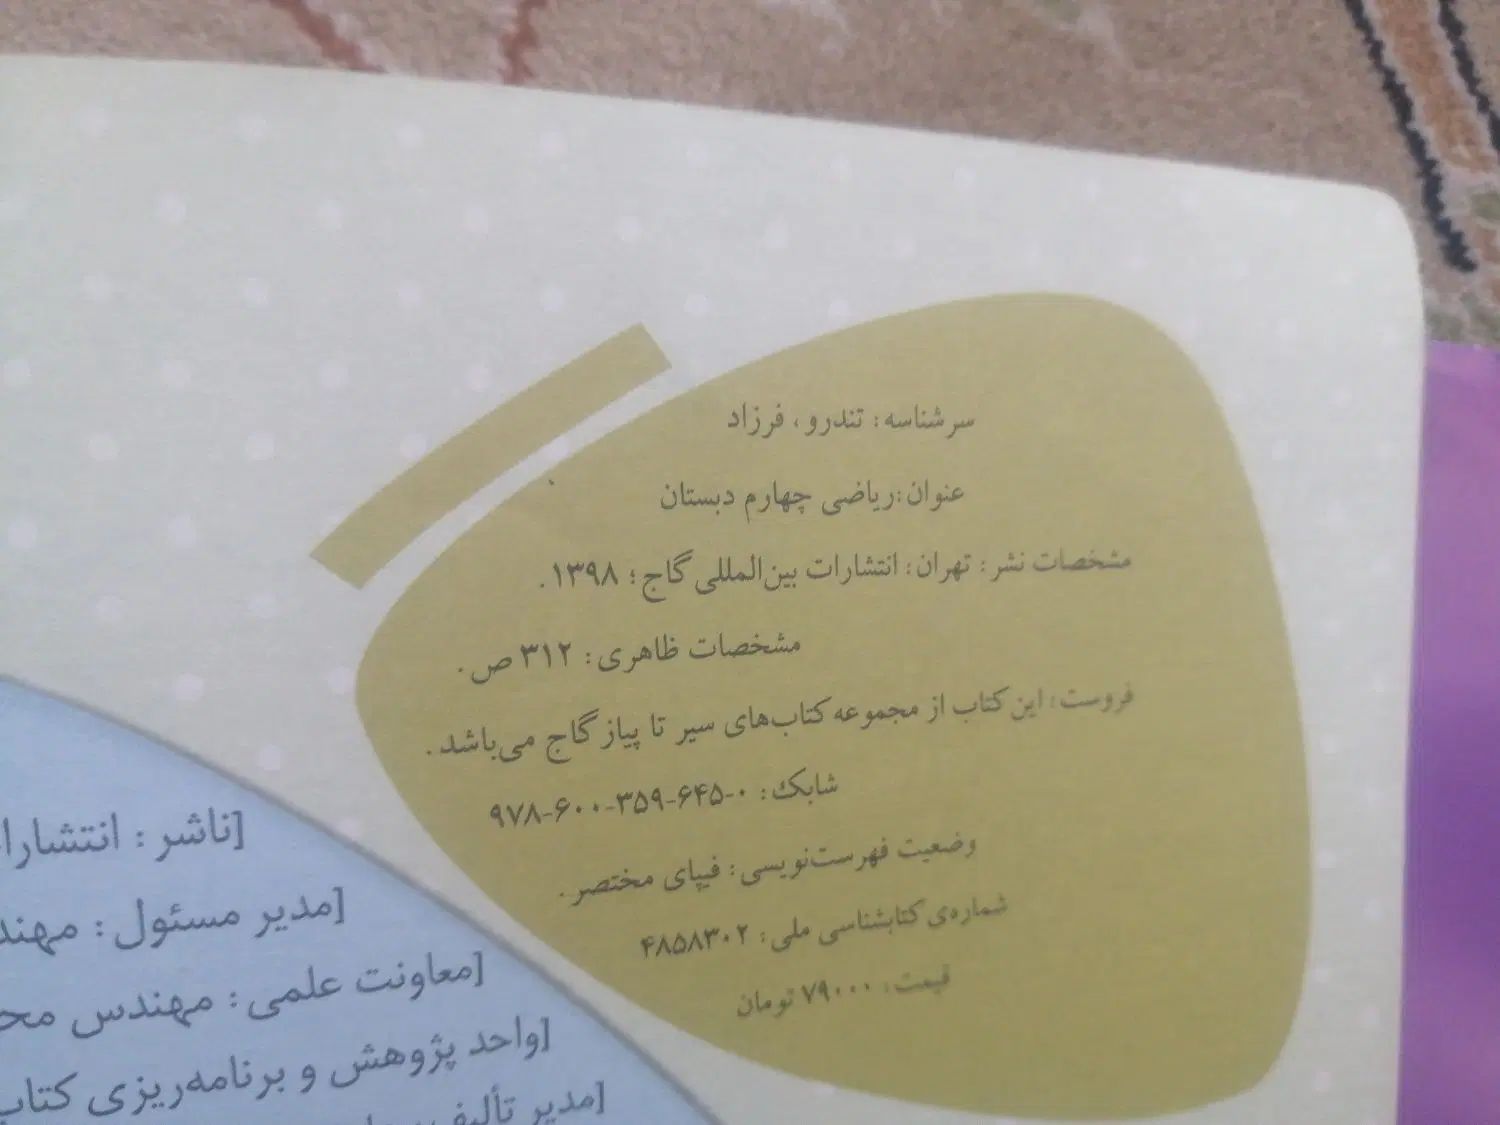 سرشناسه: تندرو، فرزاد
عنوان:ریاضی چهارم دبستان
مشخصات نشر: تهران: انتشارات بین‌المللی گاج؛ ۱۳۹۸.
مشخصات ظاهری: ۳۱۲ ص.
فروست: این کتاب از مجموعه کتاب‌های سیر تا پیاز گاج می‌باشد.
شابک: ۰-۶۴۵-۳۵۹-۶۰۰-۹۷۸
وضعیت فهرست‌نویسی: فیپای مختصر.
شماره‌ی کتابشناسی ملی: ۴۸۵۸۳۰۲
قیمت: ۷۹۰۰۰ تومان
[ناشر: انتشارا
[مدیر مسئول: مهند
[معاونت علمی: مهندس مح
[واحد پژوهش و برنامه‌ریزی کتاب
[مدیر تألیف